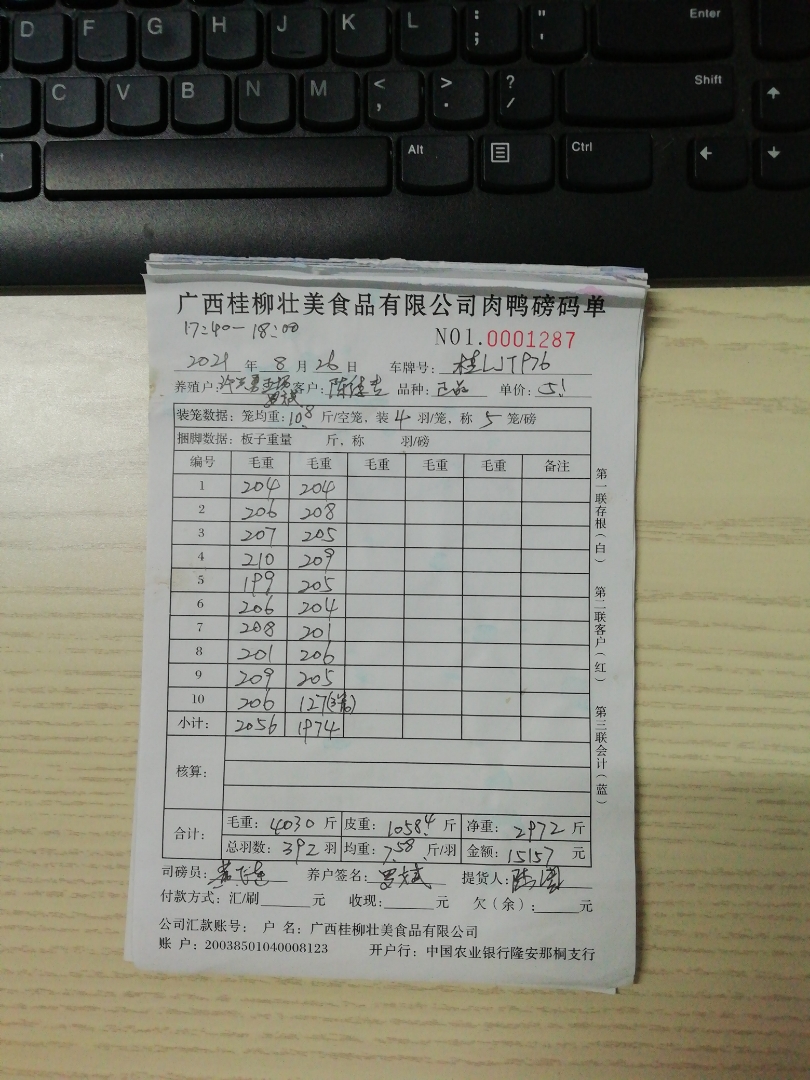 D F G H J K L : ; " ' Enter
C V B N M < , > . ? / Shift
Alt Ctrl
广西桂柳壮美食品有限公司肉鸭磅码单
17:40-18:00
NO1.0001287
2021 年 8 月 26 日 车牌号: 桂LJTP76
养殖户: 客户: 品种: 正品 单价: 5.1
装笼数据: 笼均重: 10.8 斤/空笼, 装 4 羽/笼, 称 5 笼/磅
捆脚数据: 板子重量 斤, 称 羽/磅
编号 毛重 毛重 毛重 毛重 毛重 备注
1 204 204
2 206 208
3 207 205
4 210 209
5 199 205
6 206 204
7 208 201
8 201 206
9 209 205
10 206 127(3笼)
小计: 2056 1974
核算:
合计: 毛重: 4030 斤 皮重: 1058.4 斤 净重: 2972 斤
总羽数: 392 羽 均重: 7.58 斤/羽 金额: 15157 元
司磅员: 养户签名: 罗斌 提货人:
付款方式: 汇/刷 元 收现: 元 欠(余): 元
公司汇款账号: 户 名: 广西桂柳壮美食品有限公司
账 户: 20038501040008123 开户行: 中国农业银行隆安那桐支行
第一联存根(白)
第二联客户(红)
第三联会计(蓝)